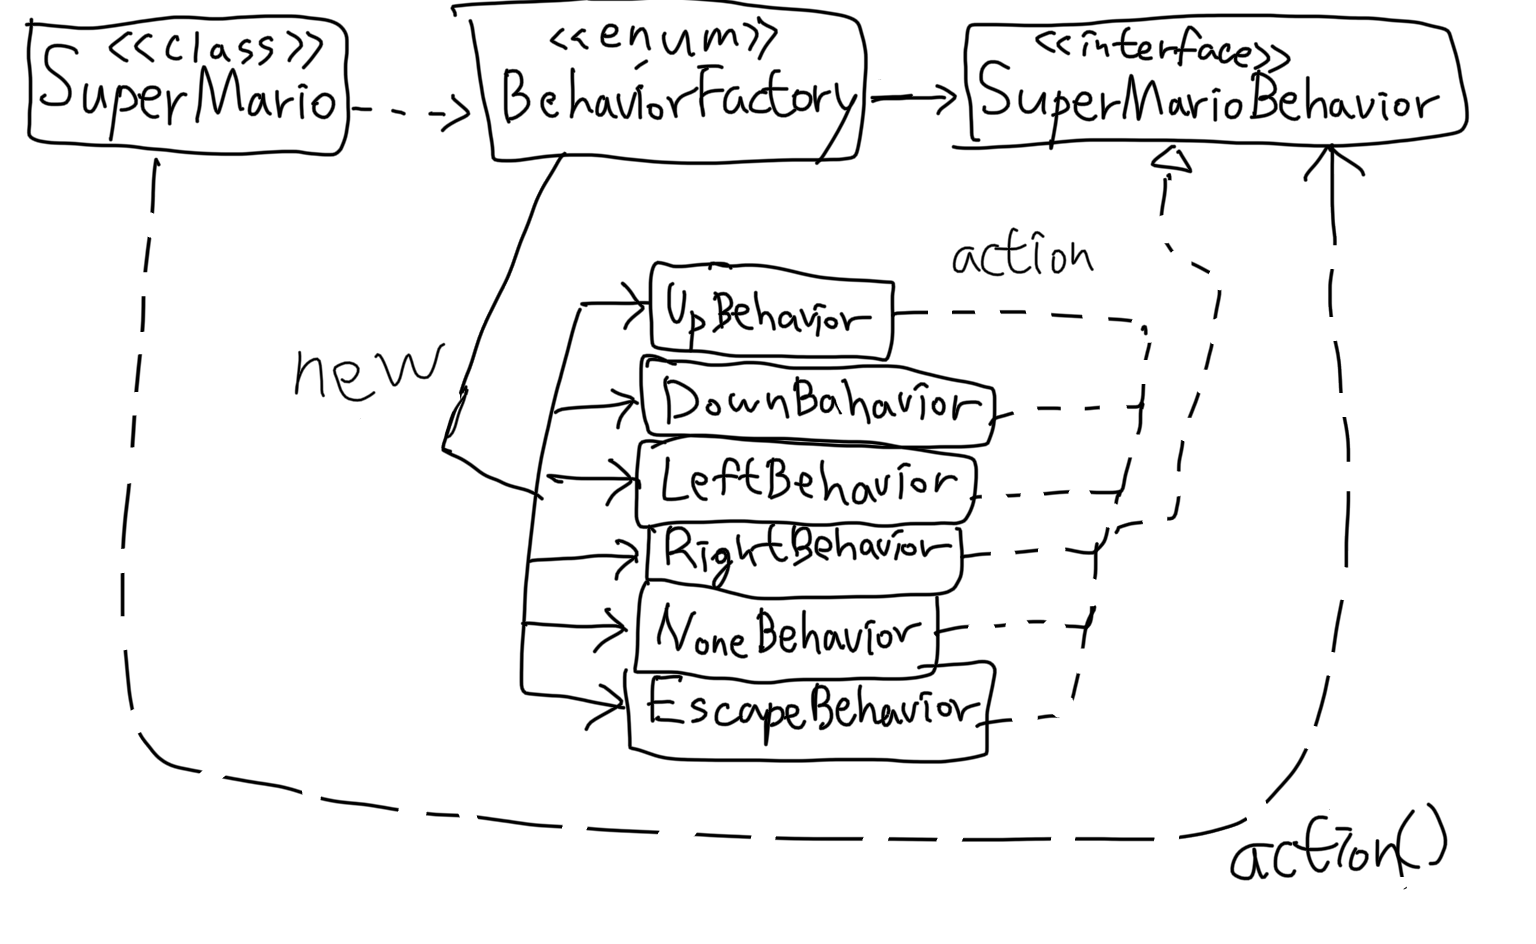 <<class>>
SuperMario
<<enum>>
BehaviorFactory
<<interface>>
SuperMarioBehavior
action
UpBehavior
new
DownBahavior
LeftBehavior
RightBehavior
NoneBehavior
EscapeBehavior
action()